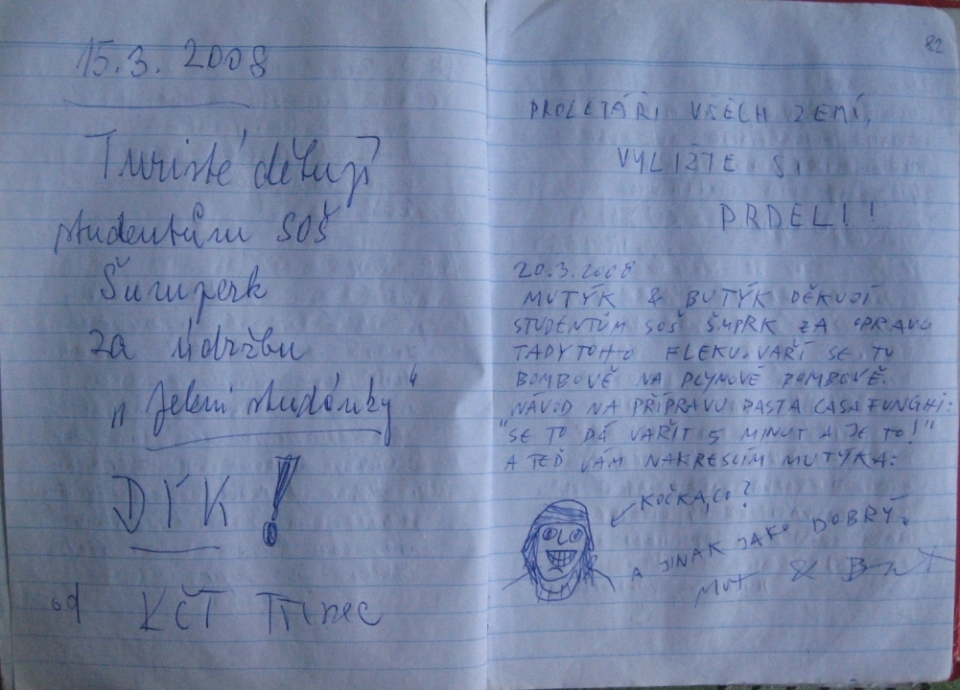 15.3. 2008
Turisté děkují
studentům SOŠ
Šumperk
za údržbu
„Jelení studánky“
DÍK!
od KČT Třinec
82
PROLETÁŘI VŠECH ZEMÍ,
VYLIŽTE SI
PRDEL!!
20.3.2008
MUTÝK & BUTÝK DĚKUJÍ
STUDENTŮM SOŠ ŠMPRK ZA OPRAVU
TADYTOHO FLEKU. VAŘÍ SE TU
BOMBOVĚ NA PLYNOVÉ BOMBOVĚ.
NÁVOD NA PŘÍPRAVU PASTA CASA FUNGHI:
"SE TO DÁ VAŘIT 5 MINUT A JE TO!"
A TEĎ VÁM NAKRESLÍM MUTÝKA:
KOČKA, CO?
A JINAK JAKO DOBRÝ.
MUT & BUT